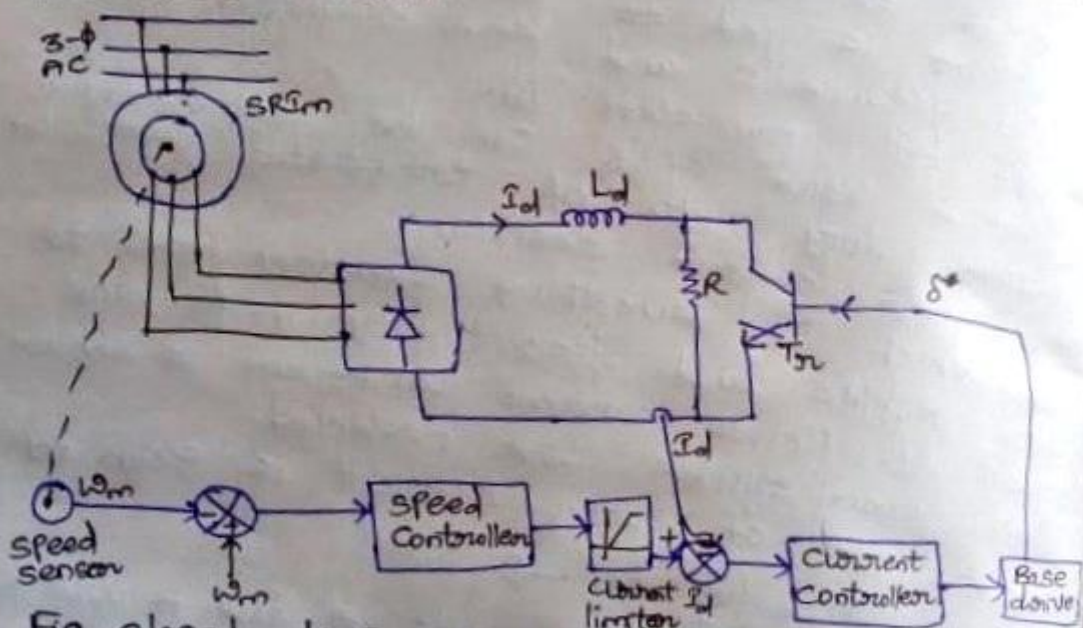 3-ϕ
AC
SRIm
Id
Ld
R
δ*
Tr
Id
Wm
-
+
Wm
speed
sensor
speed
Controller
+
-
Current
limiter
Id
Current
Controller
Base
drive
Fig